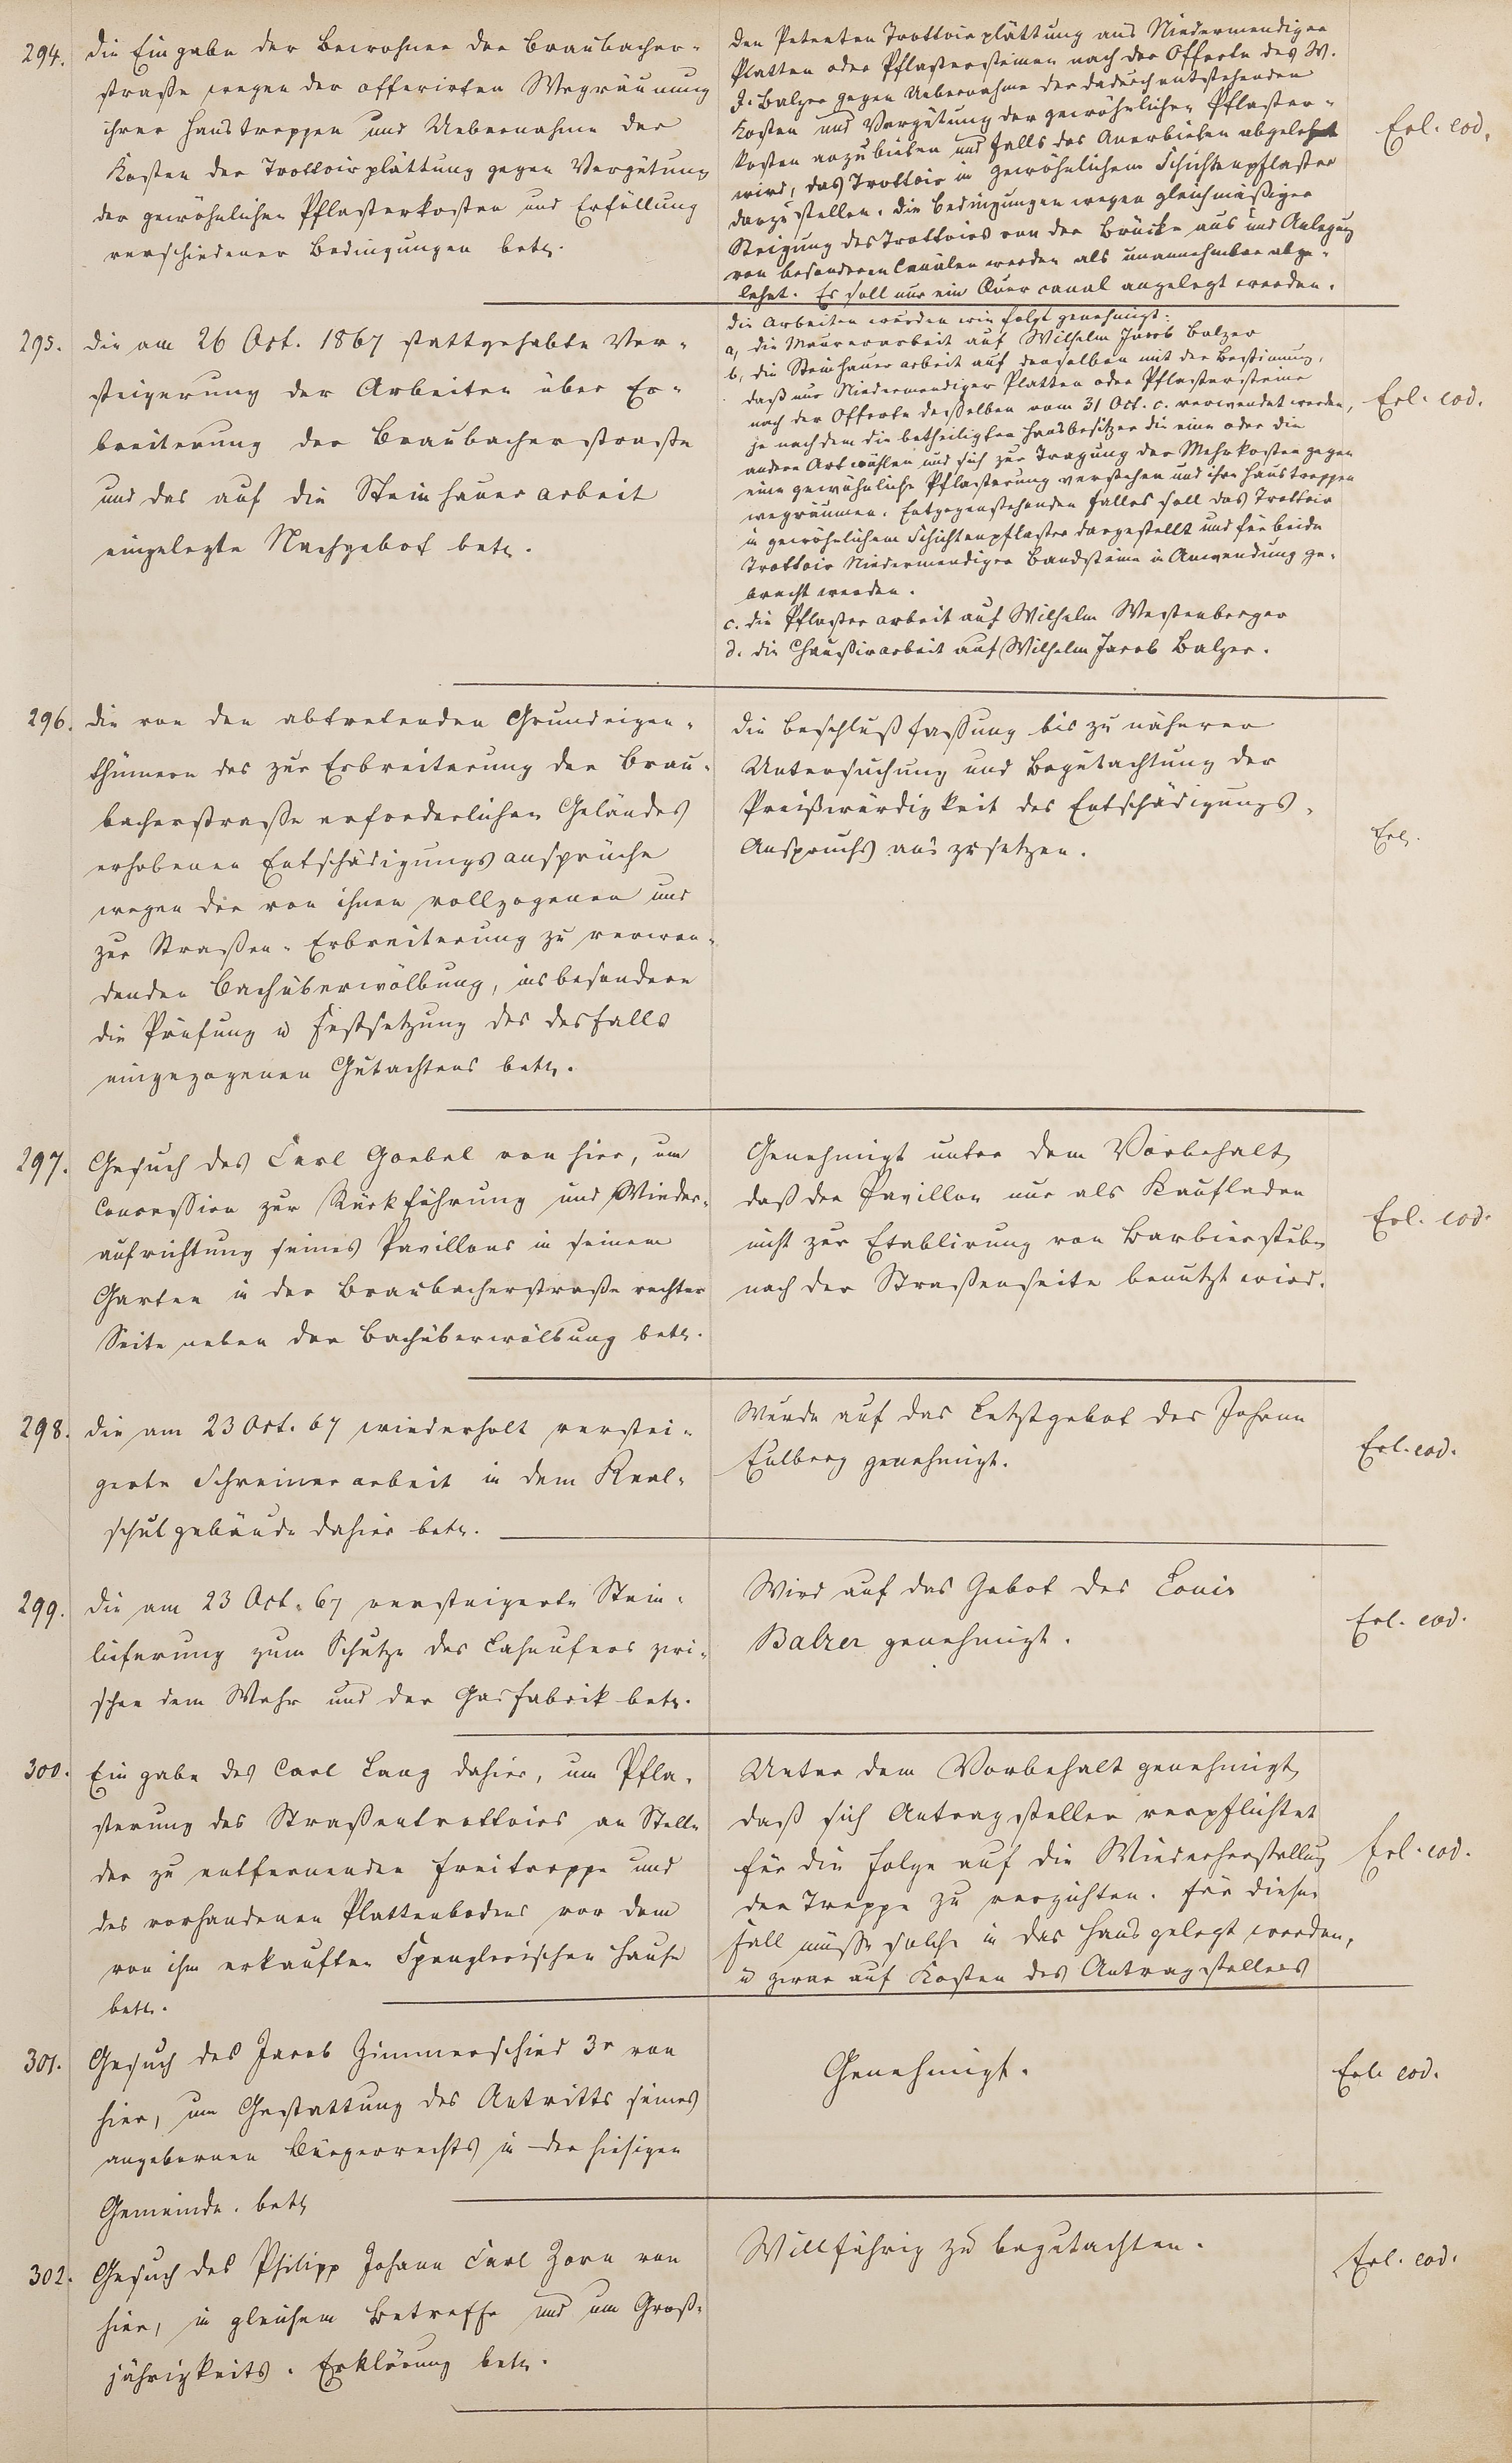 294.
die Eingabe der Bewohner der Braubacher-
straße wegen der offerirten Wegräumung
ihrer Haustreppen und Uebernahme der
Kosten der Trottoirplättung gegen Vergütung
der gewöhnlichen Pflasterkosten und Erfüllung
verschiedener Bedingungen betr.
den Petenten Trottoirplättung aus Niedermendiger
Platten oder Pflastersteinen nach der Offerte des W.
J. Balzer gegen Uebernahme der dadurch entstehenden
Kosten und Vergütung der gewöhnlichen Pflaster-
kosten anzubieten und falls das Anerbieten abgelehnt
wird, das Trottoir in gewöhnlichem Schichtenpflaster
darzustellen. Die Bedingungen wegen gleichmäßiger
Steigung des Trottoirs von der Brücke aus und Anlegung
von besonderen Canälen werden als unannehmbar abge-
lehnt. Es soll nur ein Quercanal angelegt werden.
Erl. eod.
295.
die am 26 Oct. 1867 stattgehabte Ver-
steigerung der Arbeiten über Er-
breiterung der Braubacherstraße
und das auf die Steinhauerarbeit
eingelegte Nachgebot betr.
die Arbeiten wurden wie folgt genehmigt:
a, die Maurerarbeit auf Wilhelm Jacob Balzer
b, die Steinhauerarbeit auf denselben mit der Bestimung,
daß nur Niedermendiger Platten oder Pflastersteine
nach der Offerte desselben vom 31 Oct. c. verwendet werden,
je nachdem die betheiligten Hausbesitzer die eine oder die
andere Art wählen und sich zur Tragung der Mehrkosten gegen
eine gewöhnliche Pflasterung verstehen und ihre Haustreppen
wegräumen. Entgegenstehenden Falles soll das Trottoir
in gewöhnlichem Schichtenpflaster dargestellt und für beide
Trottoir Niedermendiger Bandsteine in Anwendung ge-
bracht werden.
c. die Pflasterarbeit auf Wilhelm Westenberger
d. die Chaussirarbeit auf Wilhelm Jacob Balzer.
Erl. eod.
296.
die von den abtretenden Grundeigen-
thümern des zur Erbreiterung der Brau-
bacherstraße erforderlichen Geländes
erhobenen Entschädigungsansprüche
wegen der von ihnen vollzogenen und
zur Straßen-Erbreiterung zu verwen-
denden Bachüberwölbung, insbesondere
die Prüfung u Festsetzung des desfalls
eingezogenen Gutachtens betr.
die Beschlußfassung bis zu näherer
Untersuchung und Begutachtung der
Preißwürdigkeit des Entschädigungs-
Anspruchs auszusetzen.
Erl.
297.
Gesuch des Carl Goebel von hier, um
Concession zur Rückführung und Wieder-
aufrichtung seines Pavillons in seinem
Garten in der Braubacherstraße rechter
Seite neben der Bachüberwölbung betr.
Genehmigt unter dem Vorbehalt,
daß der Pavillon nur als Kaufladen
nicht zur Etablirung von Barbierstube
nach der Straßenseite benutzt wird.
Erl. eod.
298.
die am 23 Oct. 67 wiederholt verstei-
gerte Schreinerarbeit in dem Real-
schulgebäude dahier betr.
Wurde auf das Letztgebot des Johann
Eulberg genehmigt.
Erl. eod.
299.
die am 23 Oct. 67 versteigerte Stein-
lieferung zum Schutze des Lahnufers zwi-
schen dem Wehr und der Gasfabrik betr.
Wird auf das Gebot des Louis
Balzer genehmigt.
Erl. eod.
300.
Eingabe des Carl Lang dahier, um Pfla-
sterung des Straßentrottoirs an Stelle
der zu entfernenden Freitreppe und
des vorhandenen Plattenbodens vor dem
von ihm erkauften Spenglerischen Hause
betr.
Unter dem Vorbehalt genehmigt,
daß sich Antragsteller verpflichtet
für die Folge auf die Wiederherstellung
der Treppe zu verzichten. Für diesen
Fall müsse solche in das Haus gelegt werden,
u zwar auf Kosten des Antragstellers
Erl. eod.
301.
Gesuch des Jacob Zimmerschied 3r von
hier, um Gestattung des Antritts seines
angebornen Bürgerrechts in der hiesigen
Gemeinde. betr
Genehmigt.
Erl. eod.
302.
Gesuch des Philipp Johann Carl Zorn von
hier, in gleichem Betreffe und um Groß-
jährigkeits-Erklärung betr.
Willfährig zu begutachten.
Erl. eod.